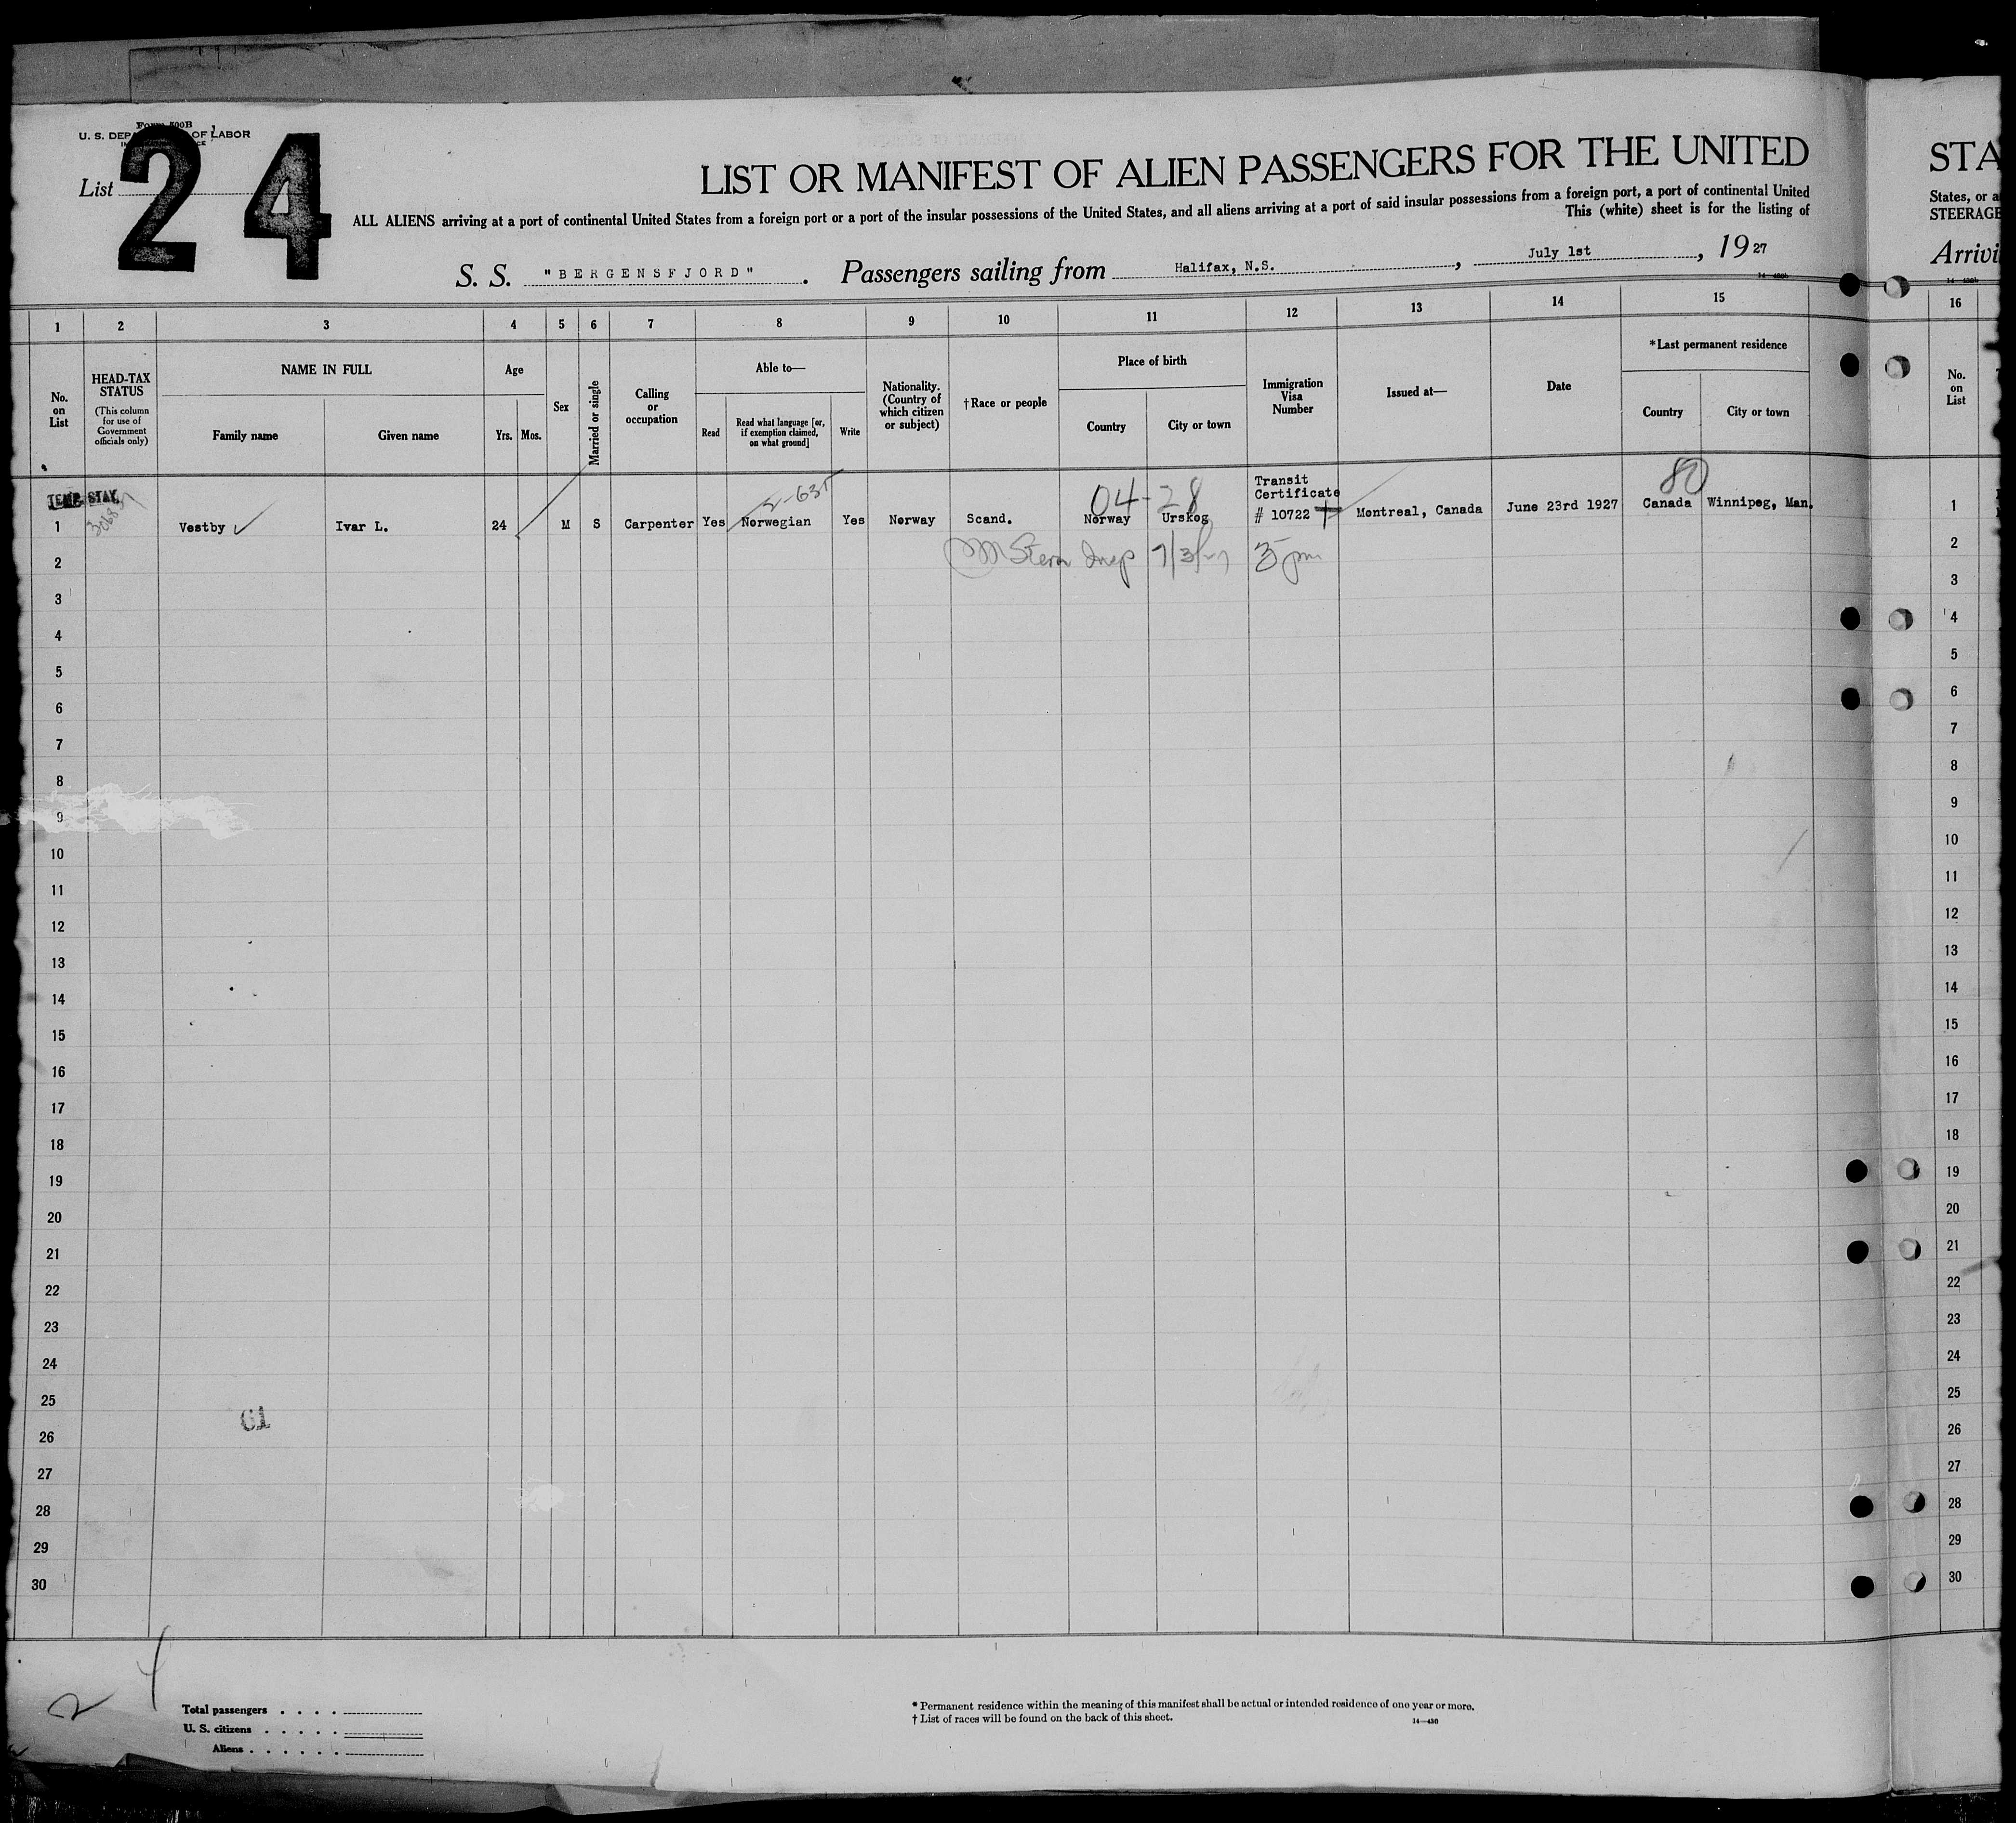 Form 500B
U. S. DEPA OF LABOR
List
24
LIST OR MANIFEST OF ALIEN PASSENGERS FOR THE UNITED
ALL ALIENS arriving at a port of continental United States from a foreign port or a port of the insular possessions of the United States, and all aliens arriving at a port of said insular possessions from a foreign port, a port of continental United
This (white) sheet is for the listing of
S. S. "BERGENSFJORD". Passengers sailing from Halifax, N.S., July 1st, 1927
STA
States, or a
STEERAGE
Arrivi
1 2 3 4 5 6 7 8 9 10 11 12 13 14 15 16
No. on List
HEAD-TAX STATUS (This column for use of Government officials only)
NAME IN FULL
Family name
Given name
Age
Yrs. Mos.
Sex
Married or single
Calling or occupation
Able to—
Read
Read what language [or, if exemption claimed, on what ground]
Write
Nationality. (Country of which citizen or subject)
†Race or people
Place of birth
Country
City or town
Immigration Visa Number
Issued at—
Date
*Last permanent residence
Country
City or town
No. on List
TEMP. STAY.
04-28
Transit
Certificate
80
1 Vestby Ivar L. 24 M S Carpenter Yes Norwegian Yes Norway Scand. Norway Urskog # 10722 Montreal, Canada June 23rd 1927 Canada Winnipeg, Man. 1
2 Stern Insp 7/3/27 3 pm 2
3 3
4 4
5 5
6 6
7 7
8 8
9 9
10 10
11 11
12 12
13 13
14 14
15 15
16 16
17 17
18 18
19 19
20 20
21 21
22 22
23 23
24 24
25 25
61
26 26
27 27
28 28
29 29
30 30
2 4
Total passengers . . . .
U. S. citizens . . . . .
Aliens . . . . . .
* Permanent residence within the meaning of this manifest shall be actual or intended residence of one year or more.
† List of races will be found on the back of this sheet.
14—430